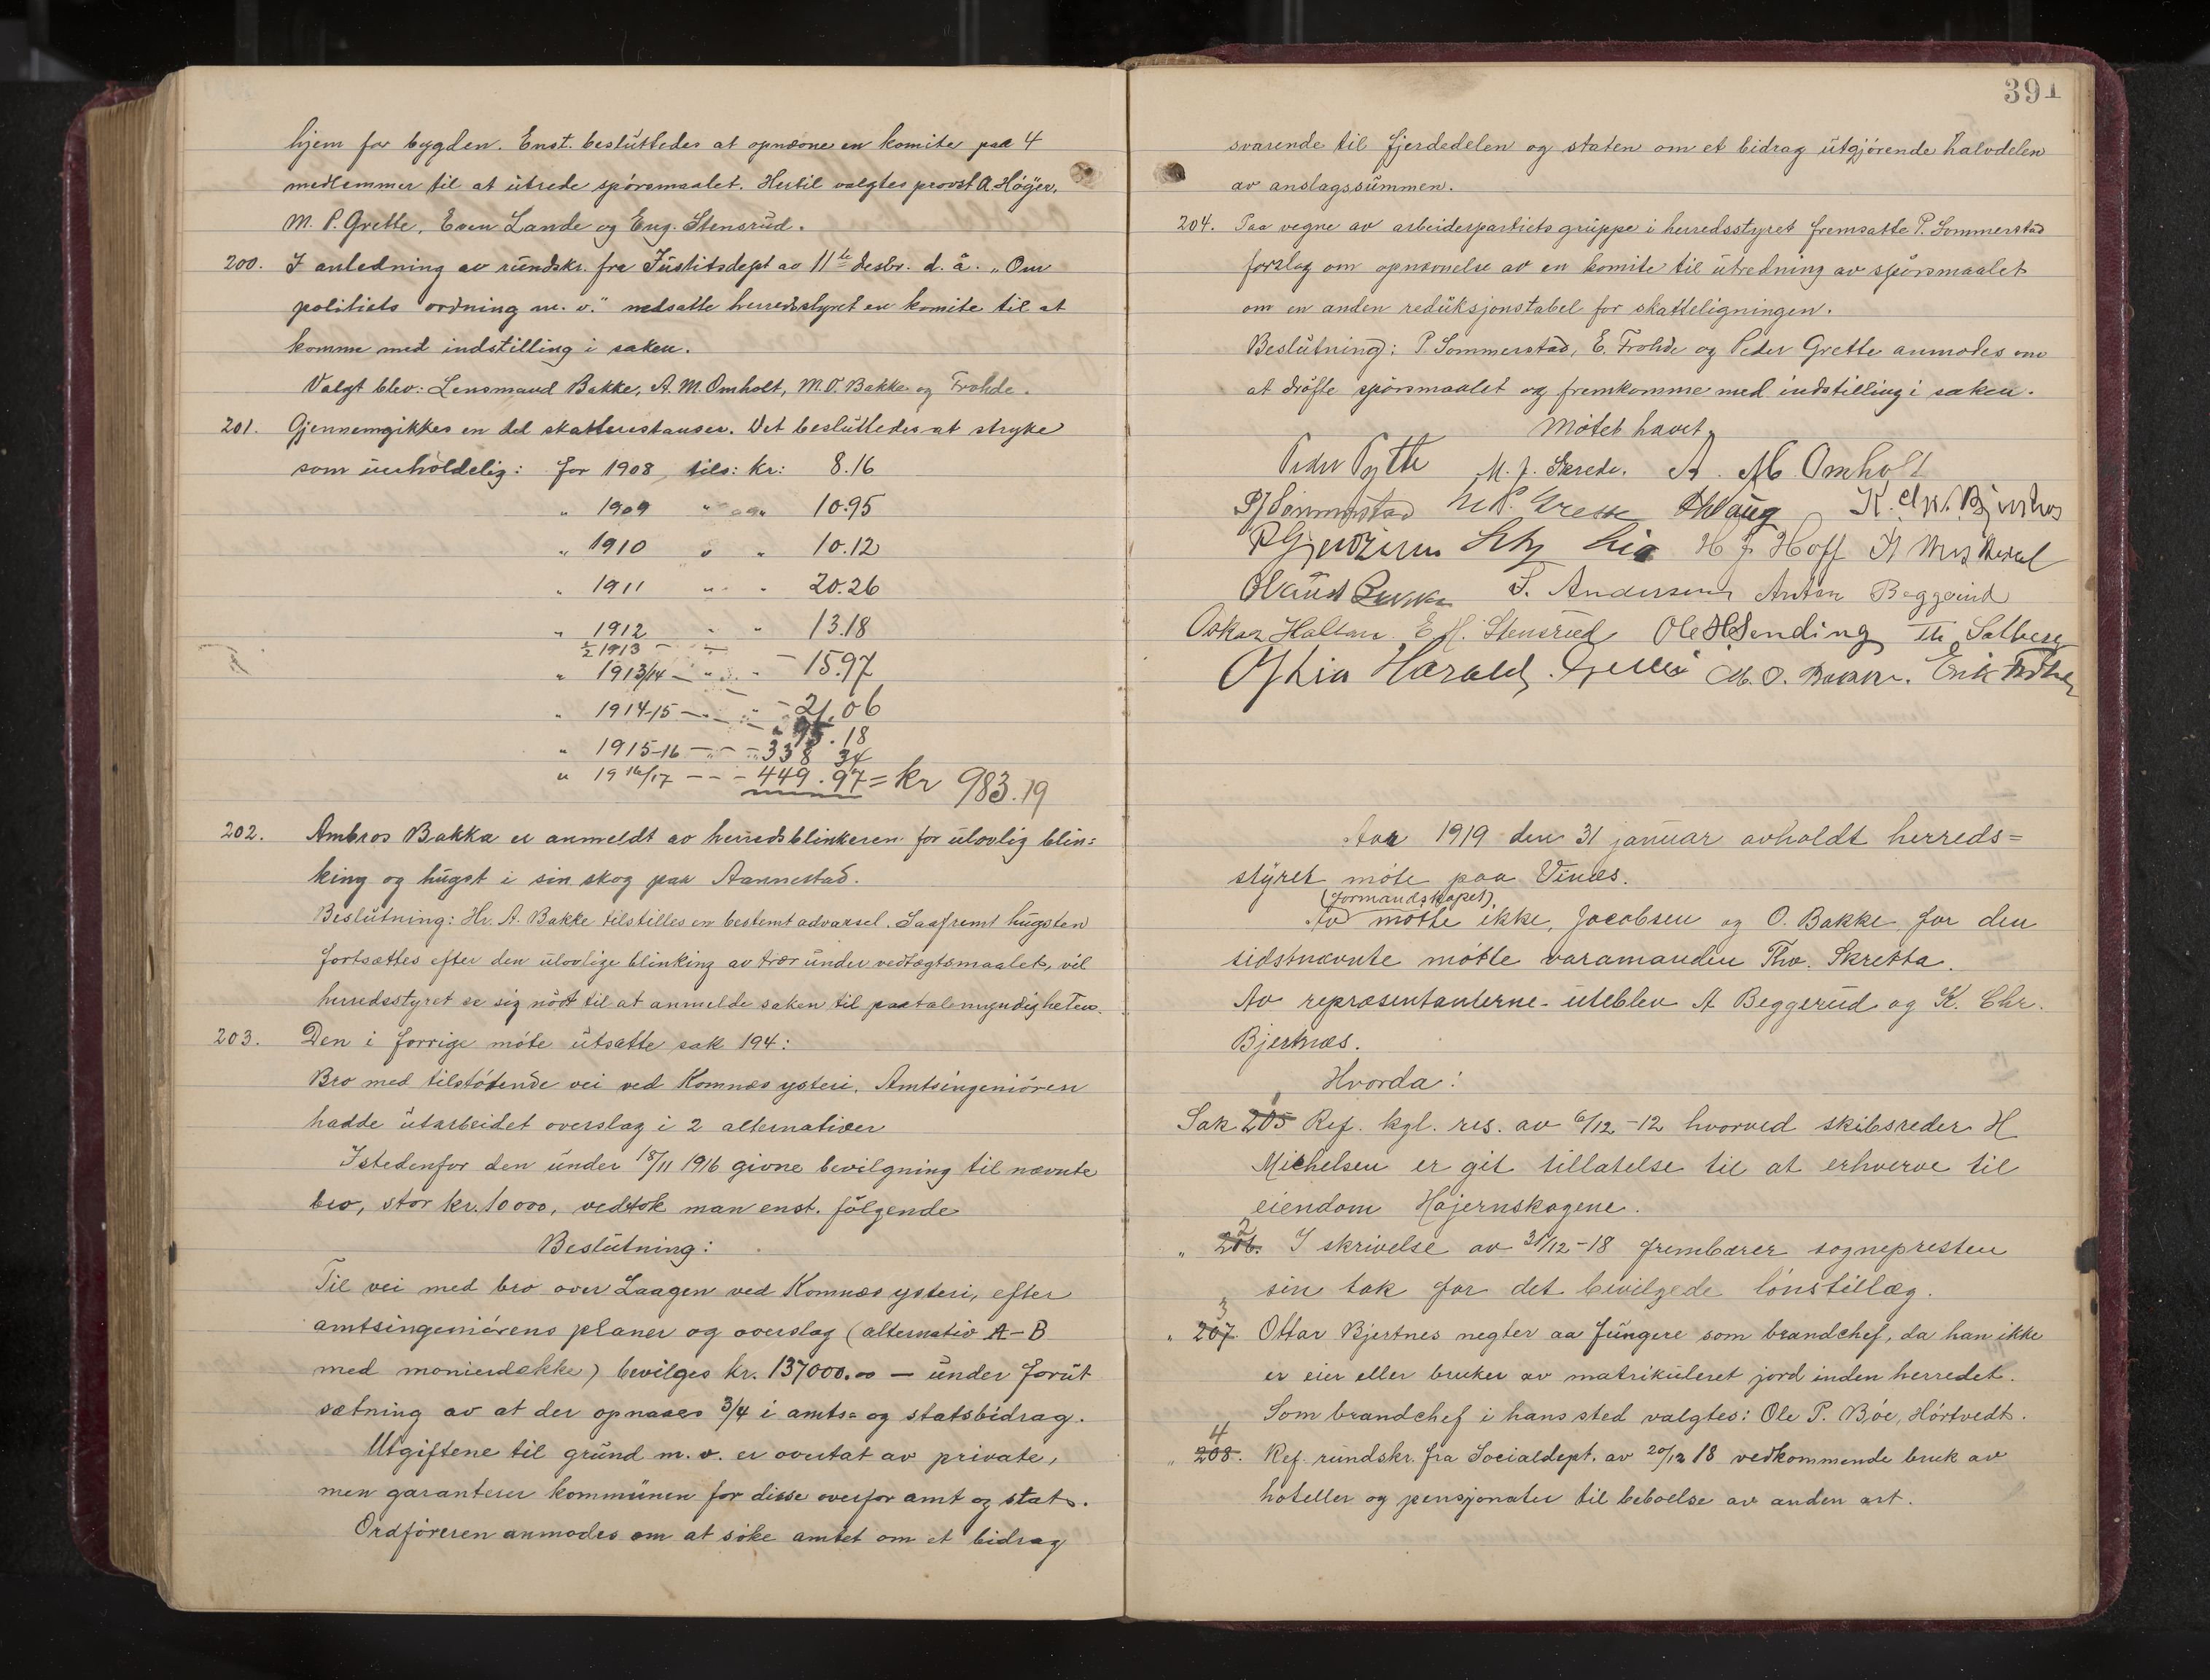 hjem for bygden. Enst. besluttedes at opnævne en komite paa 4
medlemmer til at utrede spörsmaalet. Hertil valgtes provst A. Höyer,
M. P. Grette, Even Lande og Eng. Stensrud.
200. I anledning av rundskr. fra Justitsdept av 11te desbr. d. å. „Om
politiets ordning m. v." nedsatte herredsstyret en komite til at
komme med indstilling i saken.
Valgt blev: Lensmand Bakke, A. M. Omholt, M. O. Bakka og Frohde.
201. Gjennemgikkes en del skatterestanser. Det besluttedes at stryke
som uerholdelig: for 1908, tils: kr: 8.16
" 1909 " " 10.95
" 1910 " " 10.12
" 1911 " " 20.26
" 1912 " " 13.18
1/2 1913
" 1913/14 — " " — 15.97
" 1914-15 — " — 21.06
.18
" 1915-16 — — 338 34
" 1916/17 — — 449.97 = kr 983.19
202. Ambros Bakka er anmeldt av herredsblinkeren for ulovlig blin=
king og hugst i sin skog paa Aannestad.
Beslutning: Hr. A. Bakke tilstilles en bestemt advarsel. Saafremt hugsten
fortsættes efter den ulovlige blinking av trær under vedtægtsmaalet, vil
herredsstyret se sig nödt til at anmelde saken til paatalemyndigheten.
203. Den i forrige möte utsatte sak 194:
Bro med tilstötende vei ved Komnæs ysteri. Amtsingeniören
hadde utarbeidet overslag i 2 alternativer
Istedenfor den under 18/11 1916 givne bevilgning til nævnte
bro, stor kr. 10000, vedtok man enst. fölgende
Beslutning:
Til vei med bro over Laagen ved Komnæs ysteri, efter
amtsingeniörens planer og overslag (alternativ A – B
med monierdække) bevilges kr. 137000.00 — under forut
sætning av at der opnaaes 3/4 i amts= og statsbidrag.
Utgiftene til grund m. v. er overtat av private,
men garanterer kommunen for disse overfor amt og stat.
Ordföreren anmodes om at söke amtet om et bidrag
391
svarende til fjerdedelen og staten om et bidrag utgjörende halvdelen
av anslagssummen.
204. Paa vegne av arbeiderpartiets gruppe i herredsstyret fremsatte P. Sommerstad
forslag om opnævnelse av en komite til utredning av spörsmaalet
om en anden reduksjonstabel for skatteligningen.
Beslutning: P. Sommerstad, E. Frohde og Peder Grette anmodes om
at dröfte spörsmaalet og fremkomme med indstilling i saken.
Mötet hævet.
M. J. Skrede. A. M. Omholt
P Sommerstad M. P. Grette Haug K. Chr. Bjertnes
Lia H J Hoff
S. Andersen Anton Beggerud
Oskar Haltan E. H. Stensrud Ole H Sending Th Solberg
O Lia Harald M. O. Bakka. Erik Frohde
Aar 1919 den 31 januar avholdt herreds=
styret möte paa Vinæs.
(formandskapet)
Av mötte ikke, Jacobsen og O. Bakke, for den
sidstnævnte mötte varamanden Thv. Skretta.
Av repræsentanterne uteblev A Beggerud og K. Chr.
Bjertnæs.
Hvorda:
1
Sak 205 Ref. kgl. res. av 6/12 – 12 hvorved skibsreder H
Michelsen er git tillatelse til at erhverve til
eiendom Hajernskogene.
2
" 206. I skrivelse av 31/12 – 18 frembærer sognepresten
sin tak for det bevilgede lönstillæg.
3
" 207. Ottar Bjertnes negter aa fungere som brandchef, da han ikke
er eier eller bruker av matrikuleret jord inden herredet.
Som brandchef i hans sted valgtes: Ole P. Böe, Hörtvedt.
4
" 208. Ref. rundskr. fra Socialdept. av 20/12 18 vedkommende bruk av
hoteller og pensjonater til beboelse av anden art.